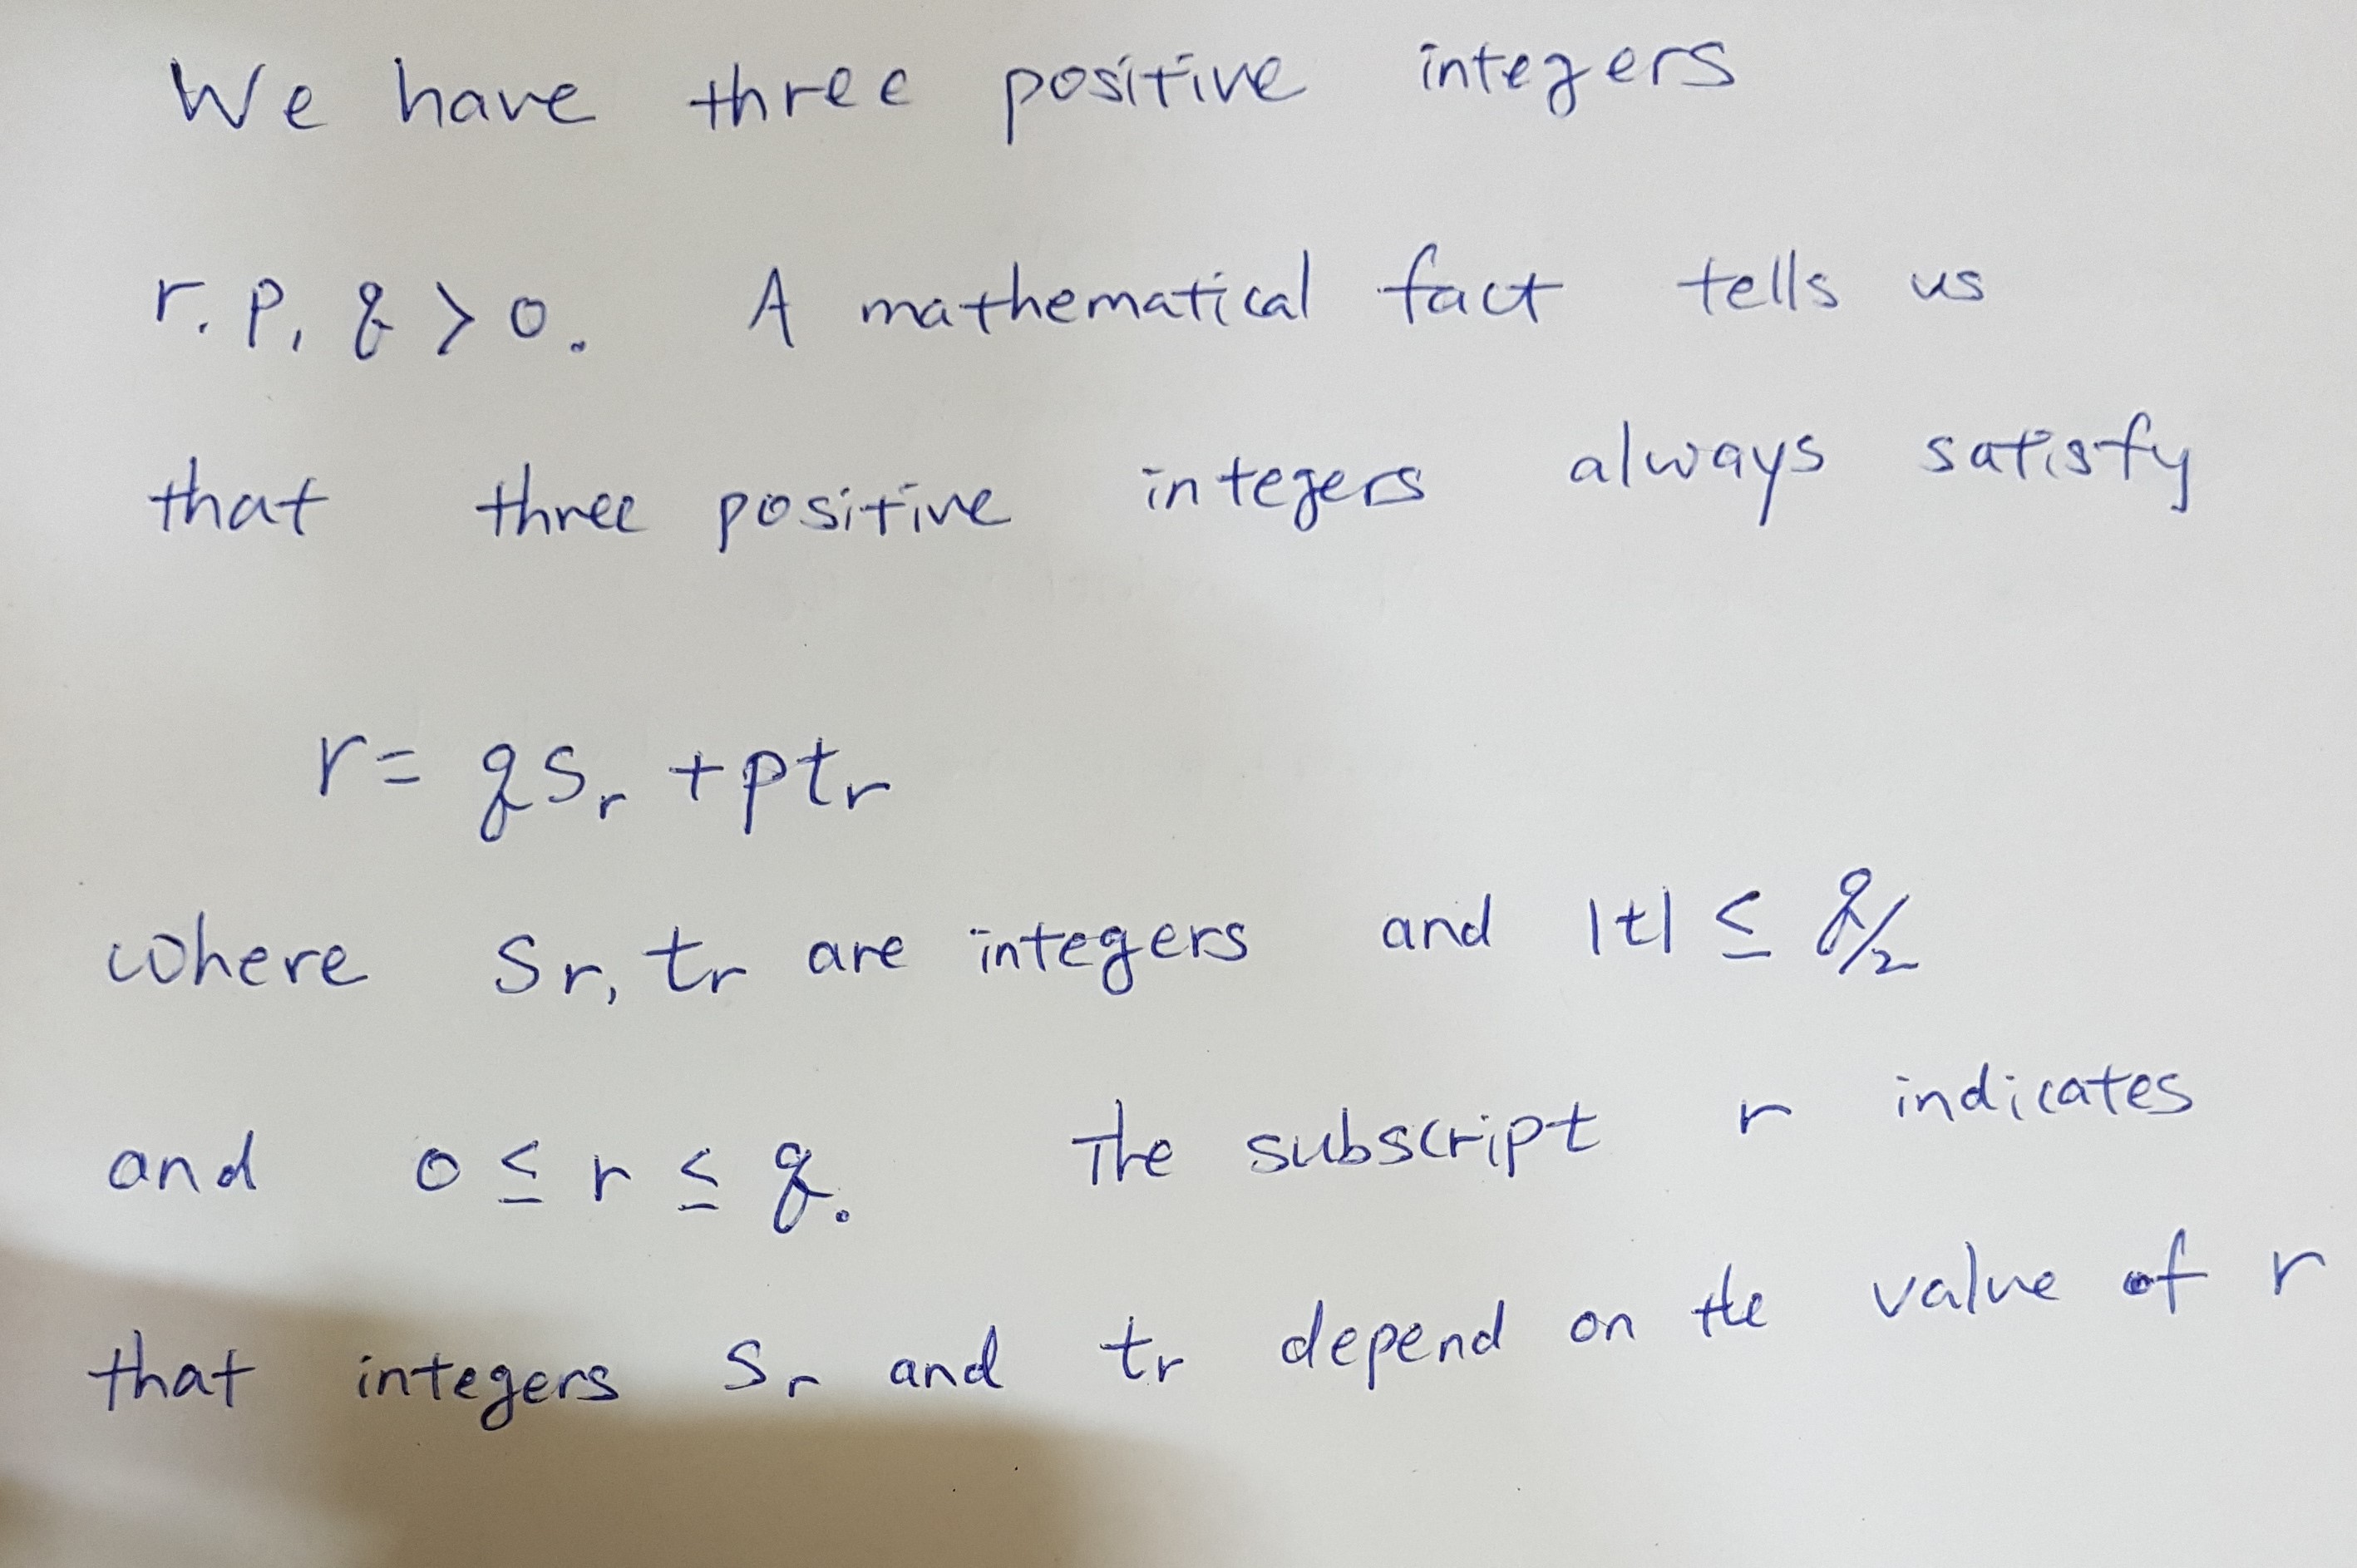 We have three positive integers
r. p, q > 0. A mathematical fact tells us
that three positive integers always satisfy
r = qsᵣ + ptᵣ
where sᵣ, tᵣ are integers and |t| ≤ q/2
and 0 ≤ r ≤ q. The subscript r indicates
that integers sᵣ and tᵣ depend on the value of r